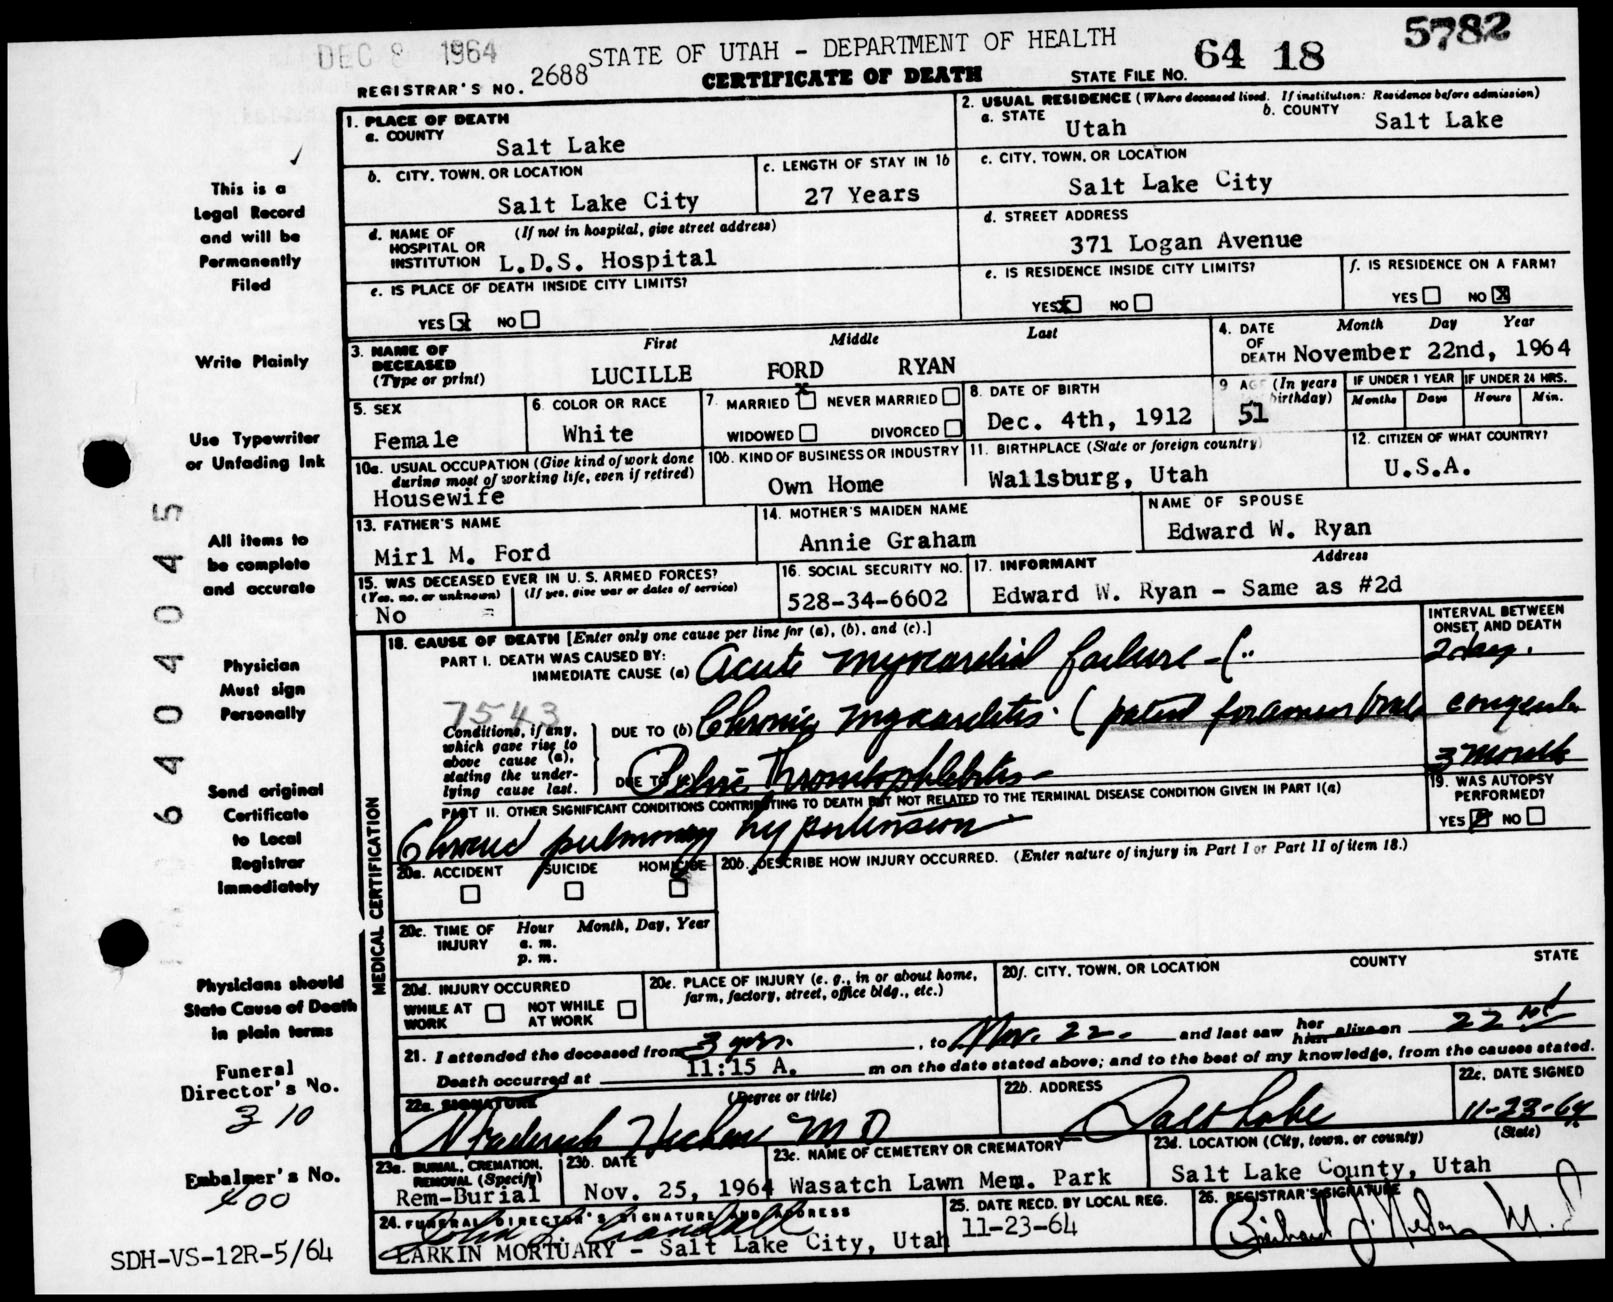 DEC 8 1964
STATE OF UTAH - DEPARTMENT OF HEALTH
64 18 5782
REGISTRAR'S NO. 2688
CERTIFICATE OF DEATH
STATE FILE NO.
1. PLACE OF DEATH
a. COUNTY
Salt Lake
2. USUAL RESIDENCE (Where deceased lived. If institution: Residence before admission)
a. STATE
Utah
b. COUNTY
Salt Lake
b. CITY, TOWN, OR LOCATION
Salt Lake City
c. LENGTH OF STAY IN 1b
27 Years
c. CITY, TOWN, OR LOCATION
Salt Lake City
d. NAME OF HOSPITAL OR INSTITUTION
(If not in hospital, give street address)
L.D.S. Hospital
d. STREET ADDRESS
371 Logan Avenue
e. IS PLACE OF DEATH INSIDE CITY LIMITS?
YES X NO
e. IS RESIDENCE INSIDE CITY LIMITS?
YES X NO
f. IS RESIDENCE ON A FARM?
YES NO X
3. NAME OF DECEASED
(Type or print)
First Middle Last
LUCILLE FORD RYAN
4. DATE OF DEATH
Month Day Year
November 22nd, 1964
5. SEX
Female
6. COLOR OR RACE
White
7. MARRIED X NEVER MARRIED
WIDOWED DIVORCED
8. DATE OF BIRTH
Dec. 4th, 1912
9 AGE (In years birthday)
51
IF UNDER 1 YEAR
Months Days
IF UNDER 24 HRS.
Hours Min.
10a. USUAL OCCUPATION (Give kind of work done during most of working life, even if retired)
Housewife
10b. KIND OF BUSINESS OR INDUSTRY
Own Home
11. BIRTHPLACE (State or foreign country)
Wallsburg, Utah
12. CITIZEN OF WHAT COUNTRY?
U.S.A.
13. FATHER'S NAME
Mirl M. Ford
14. MOTHER'S MAIDEN NAME
Annie Graham
NAME OF SPOUSE
Edward W. Ryan
15. WAS DECEASED EVER IN U. S. ARMED FORCES?
(Yes, no, or unknown) (If yes, give war or dates of service)
No -
16. SOCIAL SECURITY NO.
528-34-6602
17. INFORMANT Address
Edward W. Ryan - Same as #2d
18. CAUSE OF DEATH [Enter only one cause per line for (a), (b), and (c).]
INTERVAL BETWEEN ONSET AND DEATH
PART I. DEATH WAS CAUSED BY:
IMMEDIATE CAUSE (a) Acute myocardial failure
2 days.
7543
Conditions, if any, which gave rise to above cause (a), stating the underlying cause last.
DUE TO (b) Chronic myocarditis (patent foramen ovale
DUE TO Pelvic Thrombophlebitis
3 months
PART II. OTHER SIGNIFICANT CONDITIONS CONTRIBUTING TO DEATH BUT NOT RELATED TO THE TERMINAL DISEASE CONDITION GIVEN IN PART I(a)
Chronic pulmonary hypertension
19. WAS AUTOPSY PERFORMED?
YES X NO
20a. ACCIDENT SUICIDE HOMICIDE
20b. DESCRIBE HOW INJURY OCCURRED. (Enter nature of injury in Part I or Part II of item 18.)
20c. TIME OF INJURY
Hour Month, Day, Year
a. m.
p. m.
20d. INJURY OCCURRED
WHILE AT WORK NOT WHILE AT WORK
20e. PLACE OF INJURY (e. g., in or about home, farm, factory, street, office bldg., etc.)
20f. CITY, TOWN, OR LOCATION COUNTY STATE
21. I attended the deceased from 3 yrs. , to Nov. 22. and last saw her him alive on 22nd
Death occurred at 11:15 A. m on the date stated above; and to the best of my knowledge, from the causes stated.
22a. SIGNATURE (Degree or title)
MD
22b. ADDRESS
Salt Lake
22c. DATE SIGNED
11-23-64
23a. BURIAL, CREMATION, REMOVAL (Specify)
Rem-Burial
23b. DATE
Nov. 25, 1964
23c. NAME OF CEMETERY OR CREMATORY
Wasatch Lawn Mem. Park
23d. LOCATION (City, town, or county) (State)
Salt Lake County, Utah
24. FUNERAL DIRECTOR'S SIGNATURE AND ADDRESS
LARKIN MORTUARY - Salt Lake City, Utah
25. DATE RECD. BY LOCAL REG.
11-23-64
26. REGISTRAR'S SIGNATURE
MEDICAL CERTIFICATION
This is a
Legal Record
and will be
Permanently
Filed
Write Plainly
Use Typewriter
or Unfading Ink
All items to
be complete
and accurate
Physician
Must sign
Personally
Send original
Certificate
to Local
Registrar
Immediately
Physicians should
State Cause of Death
in plain terms
Funeral
Director's No.
310
Embalmer's No.
400
SDH-VS-12R-5/64
64040445